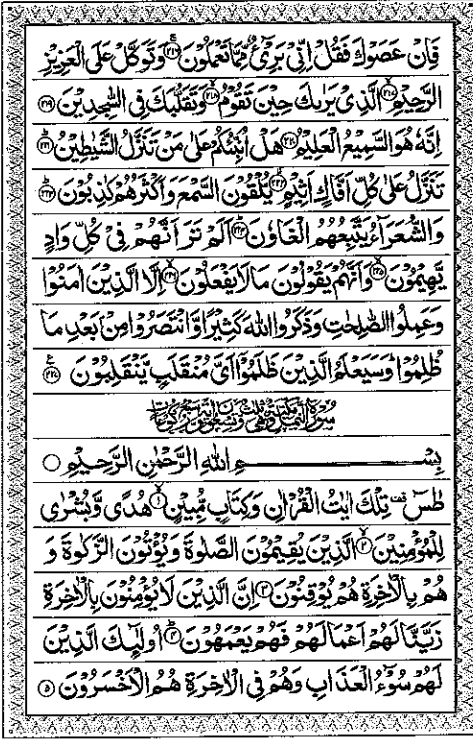 فَاِنْ عَصَوْكَ فَقُلْ اِنِّیْ بَرِیْٓءٌ مِّمَّا تَعْمَلُوْنَ ﴿۲۱۶﴾ وَتَوَكَّلْ عَلَی الْعَزِیْزِ
الرَّحِیْمِ ﴿۲۱۷﴾ الَّذِیْ یَرٰىكَ حِیْنَ تَقُوْمُ ﴿۲۱۸﴾ وَتَقَلُّبَكَ فِی السّٰجِدِیْنَ ﴿۲۱۹﴾
اِنَّهٗ هُوَ السَّمِیْعُ الْعَلِیْمُ ﴿۲۲۰﴾ هَلْ اُنَبِّئُكُمْ عَلٰی مَنْ تَنَزَّلُ الشَّیٰطِیْنُ ﴿۲۲۱﴾
تَنَزَّلُ عَلٰی كُلِّ اَفَّاكٍ اَثِیْمٍ ﴿۲۲۲﴾ یُّلْقُوْنَ السَّمْعَ وَاَكْثَرُهُمْ كٰذِبُوْنَ ﴿۲۲۳﴾
وَالشُّعَرَآءُ یَتَّبِعُهُمُ الْغَاوٗنَ ﴿۲۲۴﴾ اَلَمْ تَرَ اَنَّهُمْ فِیْ كُلِّ وَادٍ
یَّهِیْمُوْنَ ﴿۲۲۵﴾ وَاَنَّهُمْ یَقُوْلُوْنَ مَا لَا یَفْعَلُوْنَ ﴿۲۲۶﴾ اِلَّا الَّذِیْنَ اٰمَنُوْا
وَعَمِلُوا الصّٰلِحٰتِ وَذَكَرُوا اللّٰهَ كَثِیْرًا وَّانْتَصَرُوْا مِنْۢ بَعْدِ مَا
ظُلِمُوْا ؕ وَسَیَعْلَمُ الَّذِیْنَ ظَلَمُوْۤا اَیَّ مُنْقَلَبٍ یَّنْقَلِبُوْنَ ﴿۲۲۷﴾
سُوْرَةُ النَّمْلِ مَكِّیَّةٌ
بِسْمِ اللّٰهِ الرَّحْمٰنِ الرَّحِیْمِ
طٰسٓ ۟ تِلْكَ اٰیٰتُ الْقُرْاٰنِ وَكِتَابٍ مُّبِیْنٍ ﴿۱﴾ هُدًی وَّبُشْرٰی
لِلْمُؤْمِنِیْنَ ﴿۲﴾ الَّذِیْنَ یُقِیْمُوْنَ الصَّلٰوةَ وَیُؤْتُوْنَ الزَّكٰوةَ وَ
هُمْ بِالْاٰخِرَةِ هُمْ یُوْقِنُوْنَ ﴿۳﴾ اِنَّ الَّذِیْنَ لَا یُؤْمِنُوْنَ بِالْاٰخِرَةِ
زَیَّنَّا لَهُمْ اَعْمَالَهُمْ فَهُمْ یَعْمَهُوْنَ ﴿۴﴾ اُولٰٓئِكَ الَّذِیْنَ
لَهُمْ سُوْٓءُ الْعَذَابِ وَهُمْ فِی الْاٰخِرَةِ هُمُ الْاَخْسَرُوْنَ ﴿۵﴾